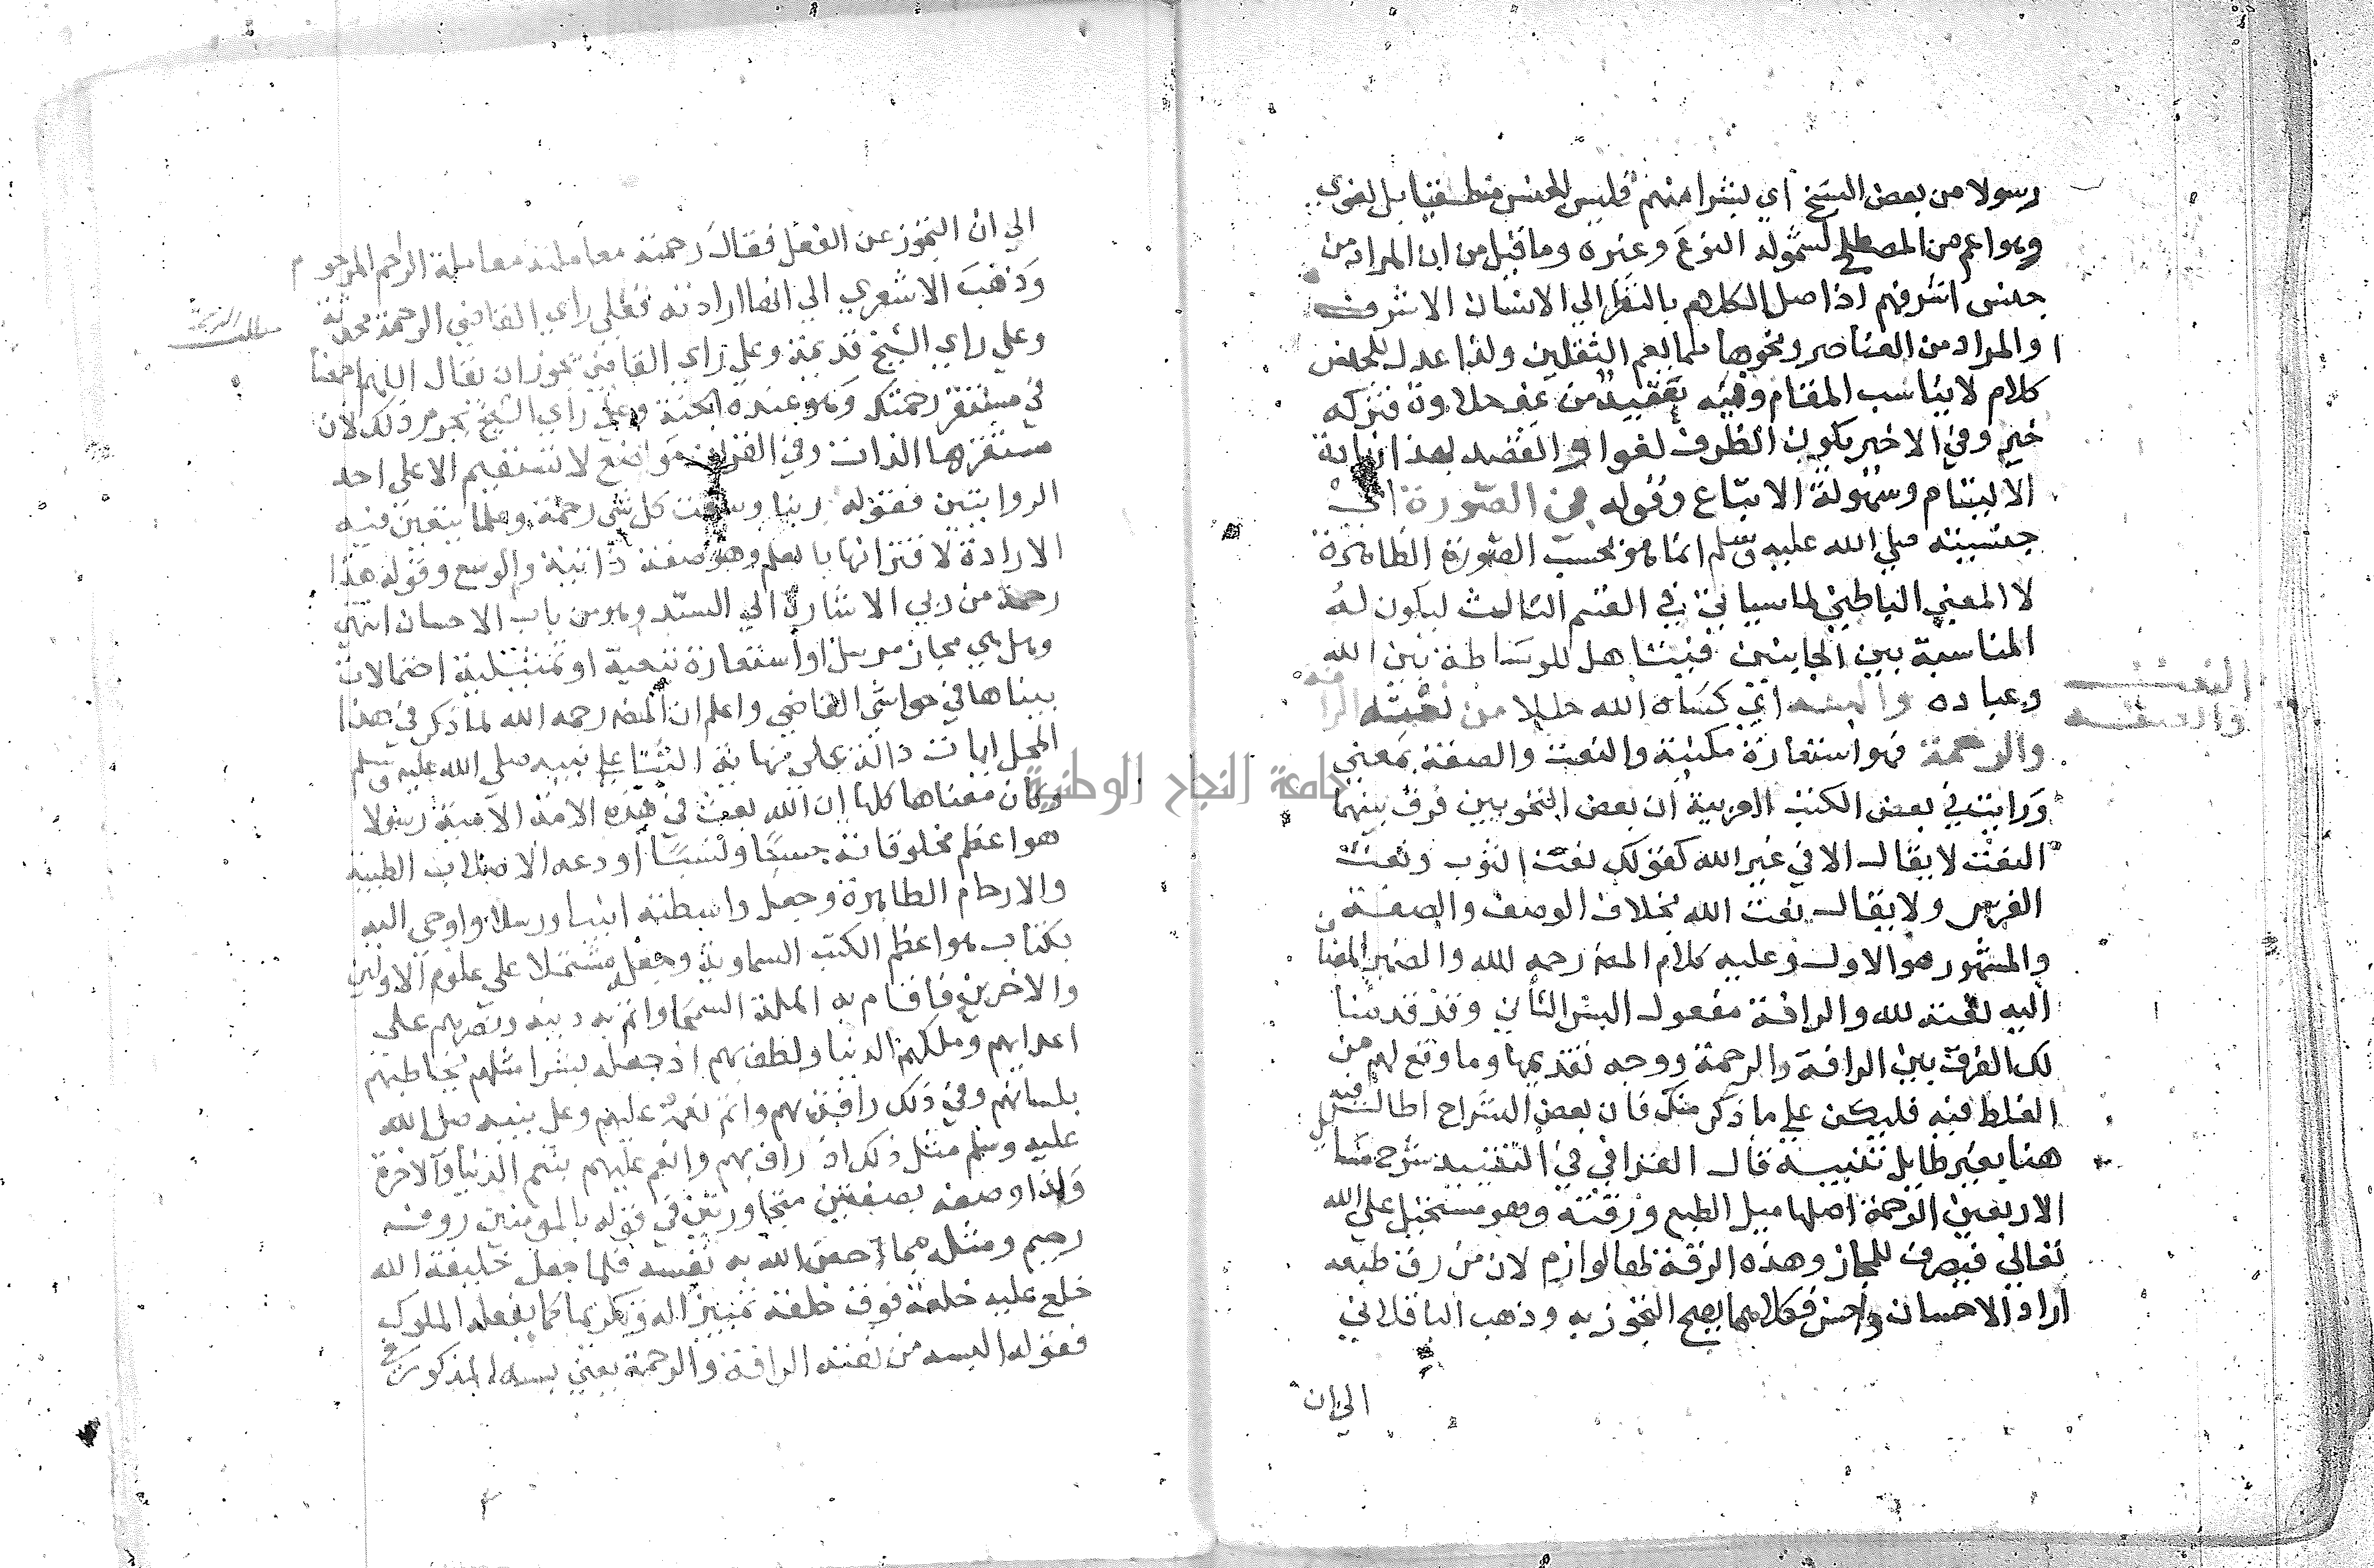 رسولا من بعض النسخ اي بشرا منهم فليس الجنس منطقيا بل لغوي
وهو اعم من المصطلح لشموله النوع وغيره وما قيل من ان المراد من
جنس اشرفهم اذا صل الكلام بالنظر الي الانسان الاشرف
والمراد من العناصر ونحوها مما يعم الثقلين ولذا عدل للمحض
كلام لا يناسب المقام وفيه تعقيد من غير حلاوة فتركه
خير وفي الاخير يكون الظرف لغوا والقصد بهذا زيادة
الالتيام وسهولة الاتباع وقوله في الصورة اي
جنسيته صلي الله عليه وسلم انما هو بحسب الصورة الظاهرة
لا المعني الباطني لما سياتي في القسم الثالث ليكون له
المناسبة بين الجانبين فيتاهل للوساطة بين الله
وعباده والبسه اي كساه الله حللا من نعته الرافة
والرحمة فهو استعارة مكنية والنعت والصفة بمعني
ورايت في بعض الكتب العربية ان بعض النحويين فرق بينهما
النعت لا يقال الا في غير الله كقولك نعت الثوب ونعت
الفرس ولا يقال نعت الله بخلاف الوصف والصفة
والمشهور هو الاول وعليه كلام المص رحمه الله والضمير المضاف
اليه نعته لله والرافة مفعول البس الثاني وقد قدمنا
لك الفرق بين الرافة والرحمة ووجه تقديمها وما وقع لهم من
الغلط فيه فليكن علي ما ذكر منك فان بعض الشراح اطال فيه
هنا بغير طايل تنبيه قال القرافي في التقييد شرح مسايل
الاربعين الرحمة اصلها ميل الطبع ورقته وهو مستحيل علي الله
تعالي فيصرف للمجاز وهذه الرقة لها لوازم لان من رق طبعه
اراد الاحسان واحسن فكلاهما يصح التجوز به وذهب الباقلاني
الي ان
النعت
والصفة
الي ان التجوز عن الفعل فقال رحمته معاملته معاملة الراحم المرحوم
وذهب الاشعري الي انها ارادته فعلي راي القاضي الرحمة محدثة
وعلي راي الشيخ قديمة وعلي راي القاضي يجوز ان يقال اللهم اجمعنا
في مستقر رحمتك وهو عنده الجنة وعلي راي الشيخ يحرم ذلك لان
مستقرها الذات وفي القران مواضع لا تستقيم الا علي احد
الروايتين فقوله ربنا وسعت كل شي رحمة وعلما يتعين فيه
الارادة لاقترانها بالعلم وهو صفة ذاتية والوسع وقوله هذا
رحمة من ربي الاشارة الي السد وهو من باب الاحسان انتهي
وهل هي مجاز مرسل او استعارة تبعية او تمثيلية احتمالات
بيناها في حواشي القاضي واعلم ان المص رحمه الله لما ذكر في هذا
المحل ايات دالة علي نهاية الثنا علي نبيه صلي الله عليه وسلم
وكان معناها كلها ان الله بعث في هذه الامة الامية رسولا
هو اعظم مخلوقاته حسبا ونسبا اودعه الاصلاب الطيبة
والارحام الطاهرة وجعل واسطته انبيا ورسلا واوحي اليه
بكتاب هو اعظم الكتب السماوية وجعل مشتملا علي علوم الاولين
والاخرين فاقام به الملة السمحا واتم به دينه ونصرهم علي
اعدايهم وملكهم الدنيا ولطف بهم اذ جعله بشرا مثلهم يخاطبهم
بلسانهم وفي ذلك رافة بهم واتم نعمه عليهم وعلي نبيه صلي الله
عليه وسلم مثل ذلك اذ راف بهم وانعم عليهم بنعم الدنيا والاخرة
ولذا وصفه بصفتين متجاورتين في قوله بالمومنين روف
رحيم ومثله مما خص الله به نفسه فلما جعل خليفة الله
خلع عليه خلعة فوق خلعة تمييزا له وتكريما كما يفعله الملوك
فقوله البسه من نعته الرافة والرحمة يعني بسه المذكورة
جامعة النجاح الوطنية